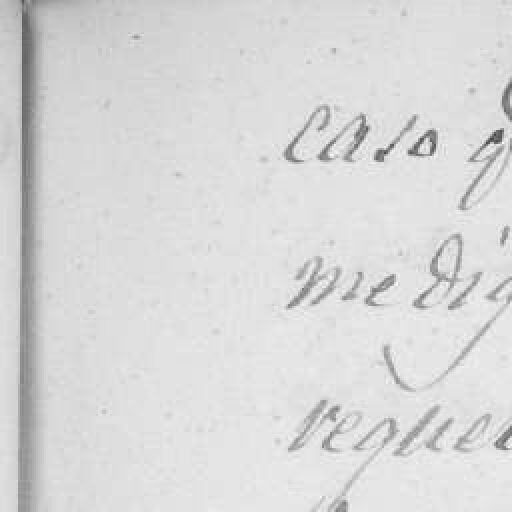 caso q
me dig
reque